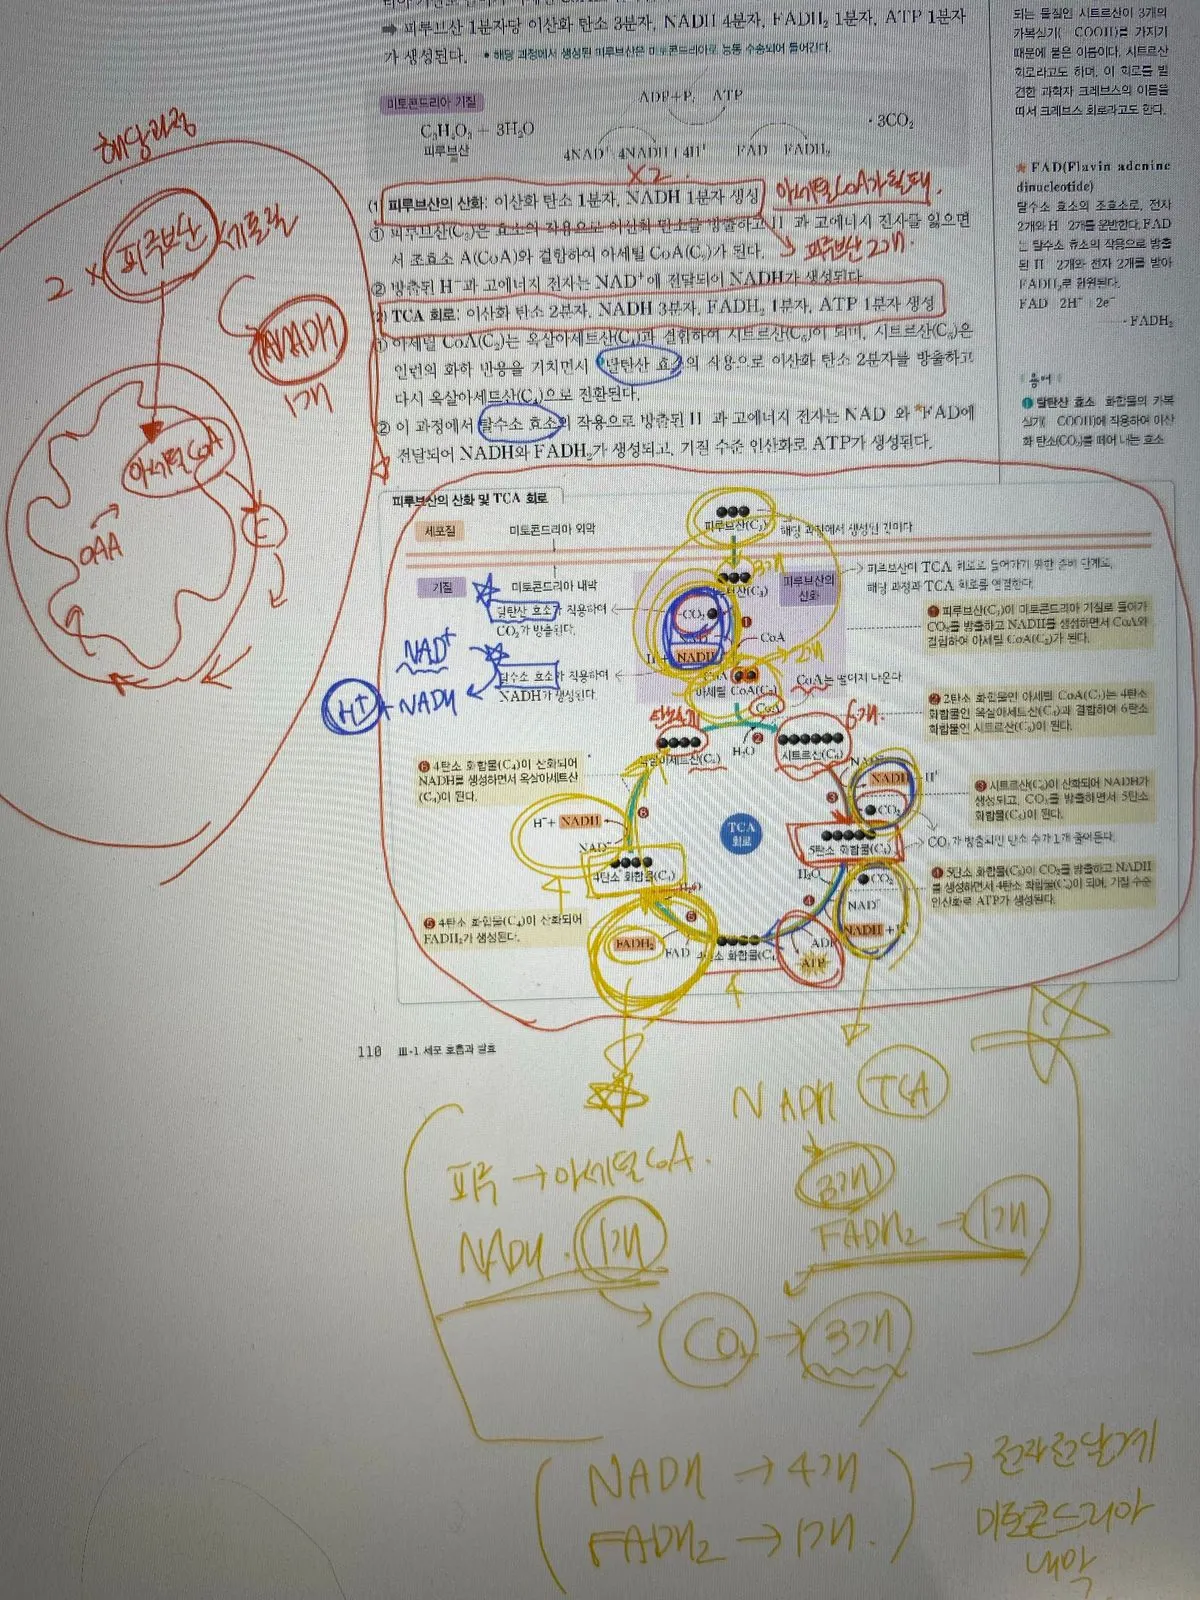 ➡ 피루브산 1분자당 이산화 탄소 3분자, NADH 4분자, FADH₂ 1분자, ATP 1분자
가 생성된다. • 해당 과정에서 생성된 피루브산은 미토콘드리아로 능동 수송되어 들어간다.
미토콘드리아 기질
ADP+Pᵢ ATP
C₃H₄O₃ + 3H₂O
피루브산
4NAD⁺ 4NADH+4H⁺ FAD FADH₂
3CO₂
×2
(1) 피루브산의 산화: 이산화 탄소 1분자, NADH 1분자 생성
① 피루브산(C₃)은 효소의 작용으로 이산화 탄소를 방출하고 H⁺과 고에너지 전자를 잃으면
서 조효소 A(CoA)와 결합하여 아세틸 CoA(C₂)가 된다.
피루브산 2개.
② 방출된 H⁺과 고에너지 전자는 NAD⁺에 전달되어 NADH가 생성된다.
(2) TCA 회로: 이산화 탄소 2분자, NADH 3분자, FADH₂ 1분자, ATP 1분자 생성
① 아세틸 CoA(C₂)는 옥살아세트산(C₄)과 결합하여 시트르산(C₆)이 되며, 시트르산(C₆)은
일련의 화학 반응을 거치면서 탈탄산 효소의 작용으로 이산화 탄소 2분자를 방출하고
다시 옥살아세트산(C₄)으로 전환된다.
② 이 과정에서 탈수소 효소의 작용으로 방출된 H⁺과 고에너지 전자는 NAD⁺와 *FAD에
전달되어 NADH와 FADH₂가 생성되고, 기질 수준 인산화로 ATP가 생성된다.
되는 물질인 시트르산이 3개의
카복실기(-COOH)를 가지기
때문에 붙은 이름이다. 시트르산
회로라고도 하며, 이 회로를 발
견한 과학자 크레브스의 이름을
따서 크레브스 회로라고도 한다.
* FAD(Flavin adenine
dinucleotide)
탈수소 효소의 조효소로, 전자
2개와 H⁺ 2개를 운반한다. FAD
는 탈수소 효소의 작용으로 방출
된 H⁺ 2개와 전자 2개를 받아
FADH₂로 환원된다.
FAD+2H⁺+2e⁻
→ FADH₂
용어
❶ 탈탄산 효소 화합물의 카복
실기(-COOH)에 작용하여 이산
화 탄소(CO₂)를 떼어 내는 효소
해당과정
2 × 피루브산
세포질
NADH
1개
아세틸 CoA
OAA
피루브산의 산화 및 TCA 회로
세포질
미토콘드리아 외막
피루브산(C₃)
해당 과정에서 생성된 것이다.
기질
미토콘드리아 내막
3개
피루브산의
산화
피루브산이 TCA 회로로 들어가기 위한 준비 단계로,
해당 과정과 TCA 회로를 연결한다.
탈탄산 효소가 작용하여
CO₂가 방출된다.
CO₂
NAD⁺
CoA
H⁺+NADH
❶ 피루브산(C₃)이 미토콘드리아 기질로 들어가
CO₂를 방출하고 NADH를 생성하면서 CoA와
결합하여 아세틸 CoA(C₂)가 된다.
탈수소 효소가 작용하여
NADH가 생성된다.
NAD⁺
H⁺ + NADH
CoA
2개
아세틸 CoA(C₂)
CoA는 떨어져 나온다.
CoA
❷ 2탄소 화합물인 아세틸 CoA(C₂)는 4탄소
화합물인 옥살아세트산(C₄)과 결합하여 6탄소
화합물인 시트르산(C₆)이 된다.
6개.
옥살아세트산(C₄)
H₂O
시트르산(C₆)
❻ 4탄소 화합물(C₄)이 산화되어
NADH를 생성하면서 옥살아세트산
(C₄)이 된다.
NAD⁺
NADH+H⁺
CO₂
❸ 시트르산(C₆)이 산화되어 NADH가
생성되고, CO₂를 방출하면서 5탄소
화합물(C₅)이 된다.
H⁺+NADH
NAD⁺
TCA
회로
5탄소 화합물(C₅)
CO₂가 방출되면 탄소 수가 1개 줄어든다.
4탄소 화합물(C₄)
H₂O
H₂O
CO₂
NAD⁺
NADH+H⁺
❹ 5탄소 화합물(C₅)이 CO₂를 방출하고 NADH
를 생성하면서 4탄소 화합물(C₄)이 되며, 기질 수준
인산화로 ATP가 생성된다.
4
❺ 4탄소 화합물(C₄)이 산화되어
FADH₂가 생성된다.
FADH₂
FAD
4탄소 화합물(C₄)
ADP
ATP
4
110 Ⅲ-1 세포 호흡과 발효
NADH TCA
피루 → 아세틸 CoA.
3개
NADH. 1개
FADH₂ → 1개
CO₂ → 3개
NADH → 4개
FADH₂ → 1개.
→ 전자전달계
미토콘드리아
내막